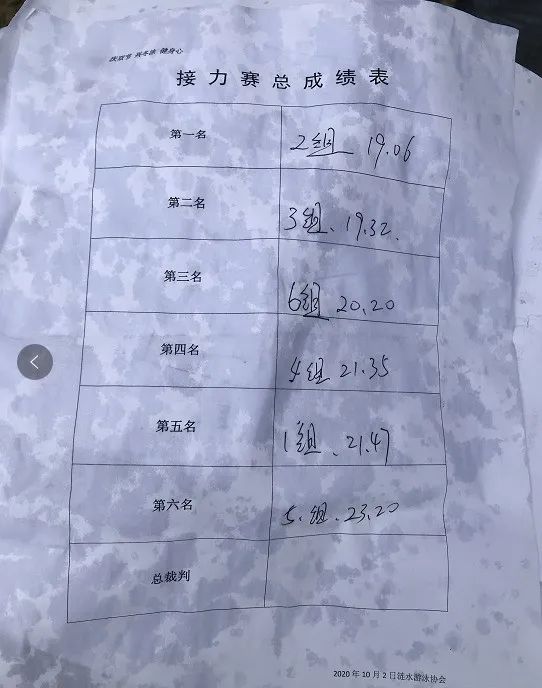 庆双节 兴冬泳 健身心
接力赛总成绩表
第一名 2组 19.06
第二名 3组、19.32.
第三名 6组 20.20
第四名 4组 21.35
第五名 1组、21.47
第六名 5.组、23.20
总裁判
2020年10月2日涟水游泳协会